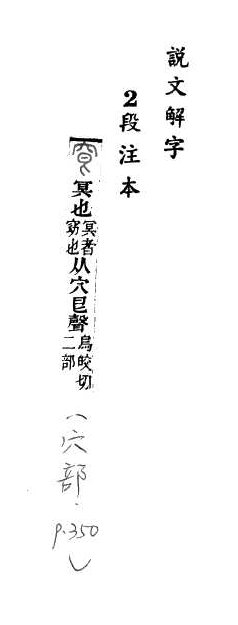 說文解字
2段注本
冥也冥者窈也从穴皀聲烏皎切二部
(穴部.p.350)